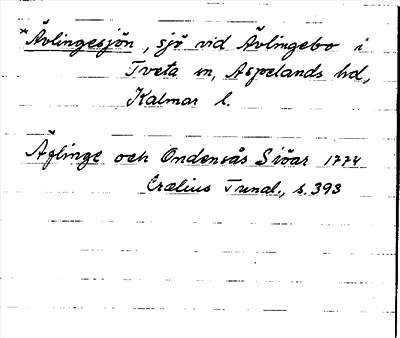 *Ävlingesjön, sjö vid Ävlingebo i
Tveta sn, Aspelands hd,
Kalmar l.
Äflinge och Ondensås Siöar 1774
Crælius Tunal., s. 393